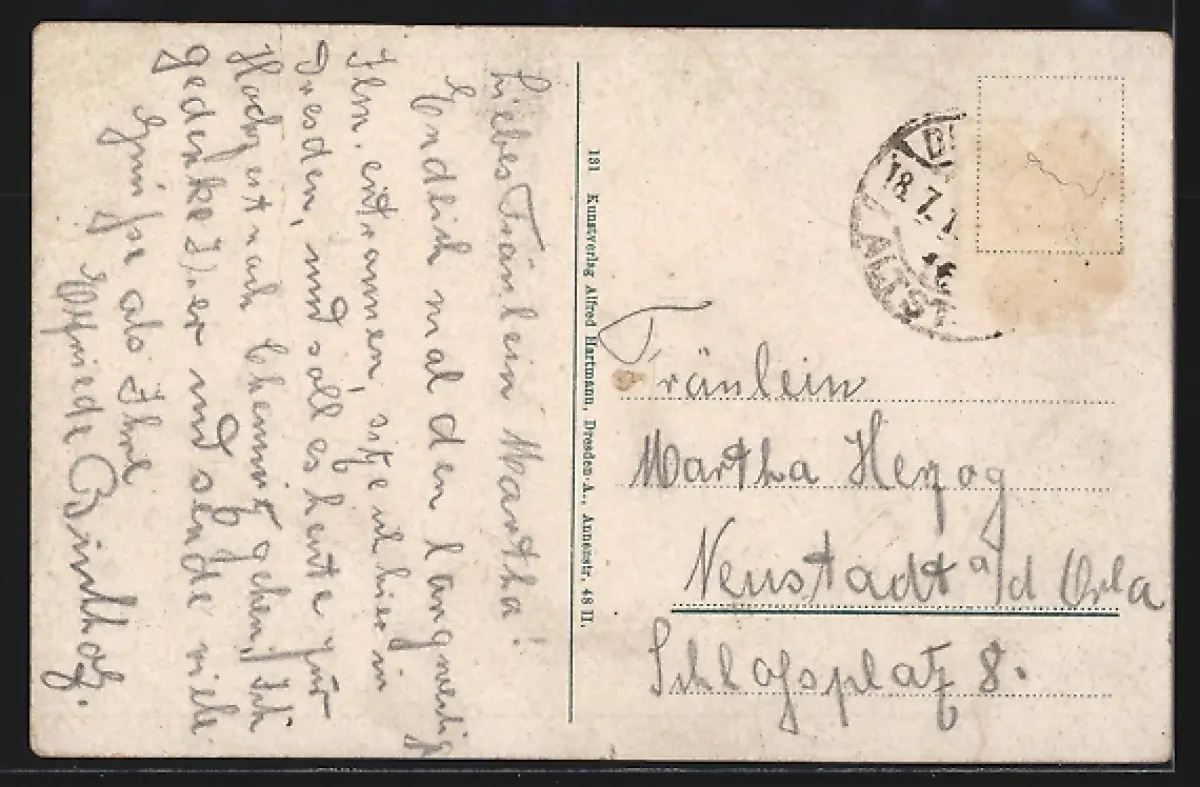 Liebes Fräulein Martha!
Endlich mal den langweilig
Ilm. entrannen, sitze ich hier in
Dresden, und soll es heute zur
Hochzeit nach Chemnitz gehen, Ich
gedenke Ihrer und sende viele
Grüsse als Ihre
Elfriede
131 Kunstverlag Alfred Hartmann, Dresden-A., Annenstr. 48 II.
18.7.1
ALTST
Fräulein
Martha Herzog
Neustadt a/d Orla
Schlossplatz 8.